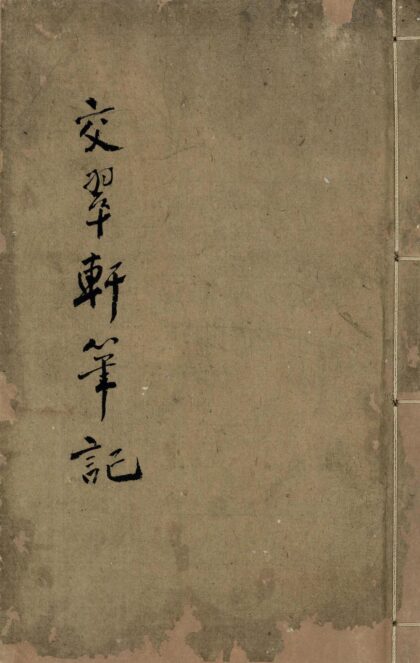 交翠軒筆記